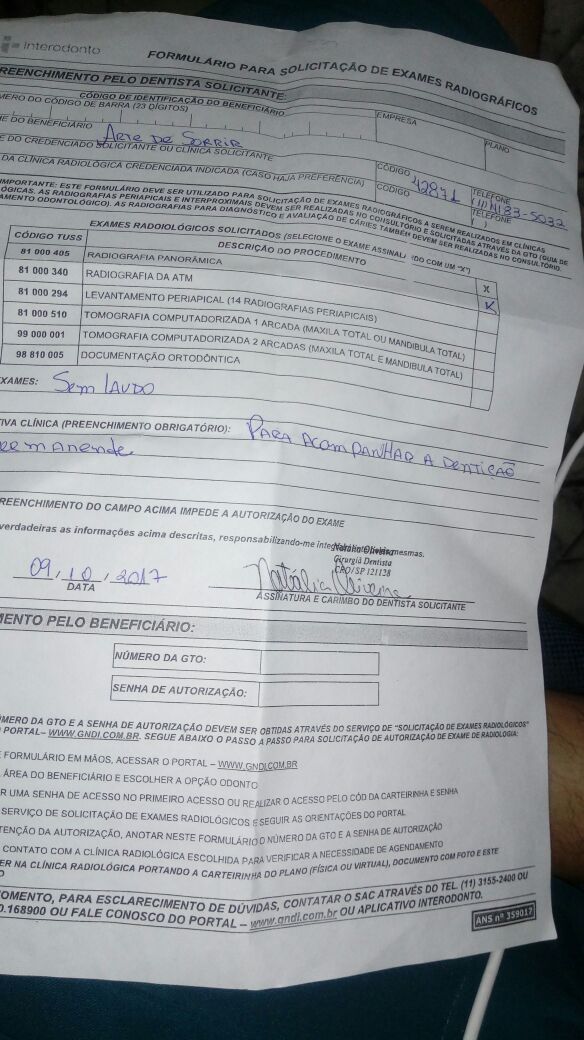 Interodonto
FORMULÁRIO PARA SOLICITAÇÃO DE EXAMES RADIOGRÁFICOS
REENCHIMENTO PELO DENTISTA SOLICITANTE:
CÓDIGO DE IDENTIFICAÇÃO DO BENEFICIÁRIO
MERO DO CÓDIGO DE BARRA (23 DÍGITOS) EMPRESA PLANO
E DO BENEFICIÁRIO
Arte de Sorrir
E DO CREDENCIADO SOLICITANTE OU CLÍNICA SOLICITANTE CÓDIGO 42871 TELEFONE
DA CLÍNICA RADIOLÓGICA CREDENCIADA INDICADA (CASO HAJA PREFERÊNCIA) CÓDIGO TELEFONE
IMPORTANTE: ESTE FORMULÁRIO DEVE SER UTILIZADO PARA SOLICITAÇÃO DE EXAMES RADIOGRÁFICOS A SEREM REALIZADOS EM CLÍNICAS
LÓGICAS. AS RADIOGRAFIAS PERIAPICAIS E INTERPROXIMAIS DEVEM SER REALIZADAS NO CONSULTÓRIO E SOLICITADAS ATRAVÉS DA GTO (GUIA DE
AMENTO ODONTOLÓGICO). AS RADIOGRAFIAS PARA DIAGNÓSTICO E AVALIAÇÃO DE CÁRIES TAMBÉM DEVEM SER REALIZADAS NO CONSULTÓRIO.
EXAMES RADIOLÓGICOS SOLICITADOS (SELECIONE O EXAME ASSINAL DO COM UM "X")
CÓDIGO TUSS DESCRIÇÃO DO PROCEDIMENTO X
81 000 405 RADIOGRAFIA PANORÂMICA X
81 000 340 RADIOGRAFIA DA ATM
81 000 294 LEVANTAMENTO PERIAPICAL (14 RADIOGRAFIAS PERIAPICAIS)
81 000 510 TOMOGRAFIA COMPUTADORIZADA 1 ARCADA (MAXILA TOTAL OU MANDIBULA TOTAL)
99 000 001 TOMOGRAFIA COMPUTADORIZADA 2 ARCADAS (MAXILA TOTAL E MANDIBULA TOTAL)
98 810 005 DOCUMENTAÇÃO ORTODÔNTICA
EXAMES: Sem LAUDO
TIVA CLÍNICA (PREENCHIMENTO OBRIGATÓRIO): PARA ACOMPANHAR A DENTIÇÃO
REENCHIMENTO DO CAMPO ACIMA IMPEDE A AUTORIZAÇÃO DO EXAME
verdadeiras as informações acima descritas, responsabilizando-me mesmas.
Natália Oliveira
Cirurgiã Dentista
CRO/SP 121128
09/10/2017 Natália Oliveira
DATA ASSINATURA E CARIMBO DO DENTISTA SOLICITANTE
MENTO PELO BENEFICIÁRIO:
NÚMERO DA GTO:
SENHA DE AUTORIZAÇÃO:
ÚMERO DA GTO E A SENHA DE AUTORIZAÇÃO DEVEM SER OBTIDAS ATRAVÉS DO SERVIÇO DE "SOLICITAÇÃO DE EXAMES RADIOLÓGICOS"
PORTAL– WWW.GNDI.COM.BR. SEGUE ABAIXO O PASSO A PASSO PARA SOLICITAÇÃO DE AUTORIZAÇÃO DE EXAME DE RADIOLOGIA:
E FORMULÁRIO EM MÃOS, ACESSAR O PORTAL – WWW.GNDI.COM.BR
ÁREA DO BENEFICIÁRIO E ESCOLHER A OPÇÃO ODONTO
R UMA SENHA DE ACESSO NO PRIMEIRO ACESSO OU REALIZAR O ACESSO PELO CÓD DA CARTEIRINHA E SENHA
SERVIÇO DE SOLICITAÇÃO DE EXAMES RADIOLÓGICOS E SEGUIR AS ORIENTAÇÕES DO PORTAL
TENÇÃO DA AUTORIZAÇÃO, ANOTAR NESTE FORMULÁRIO O NÚMERO DA GTO E A SENHA DE AUTORIZAÇÃO
CONTATO COM A CLÍNICA RADIOLÓGICA ESCOLHIDA PARA VERIFICAR A NECESSIDADE DE AGENDAMENTO
ER NA CLÍNICA RADIOLÓGICA PORTANDO A CARTEIRINHA DO PLANO (FÍSICA OU VIRTUAL), DOCUMENTO COM FOTO E ESTE
O
OMENTO, PARA ESCLARECIMENTO DE DÚVIDAS, CONTATAR O SAC ATRAVÉS DO TEL. (11) 3155-2400 OU
0.168900 OU FALE CONOSCO DO PORTAL – www.gndi.com.br OU APLICATIVO INTERODONTO.
ANS nº 359017